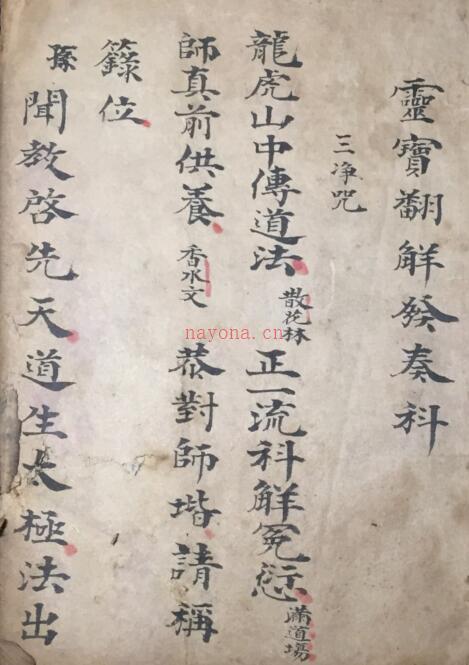 靈寶翻解發奏科
三净咒
龍虎山中傳道法散花林正一流科解冤愆滿道場
師真前供養香水文恭對師堦請稱
籙位
孫聞教啓先天道生太極法出
nayona.cn